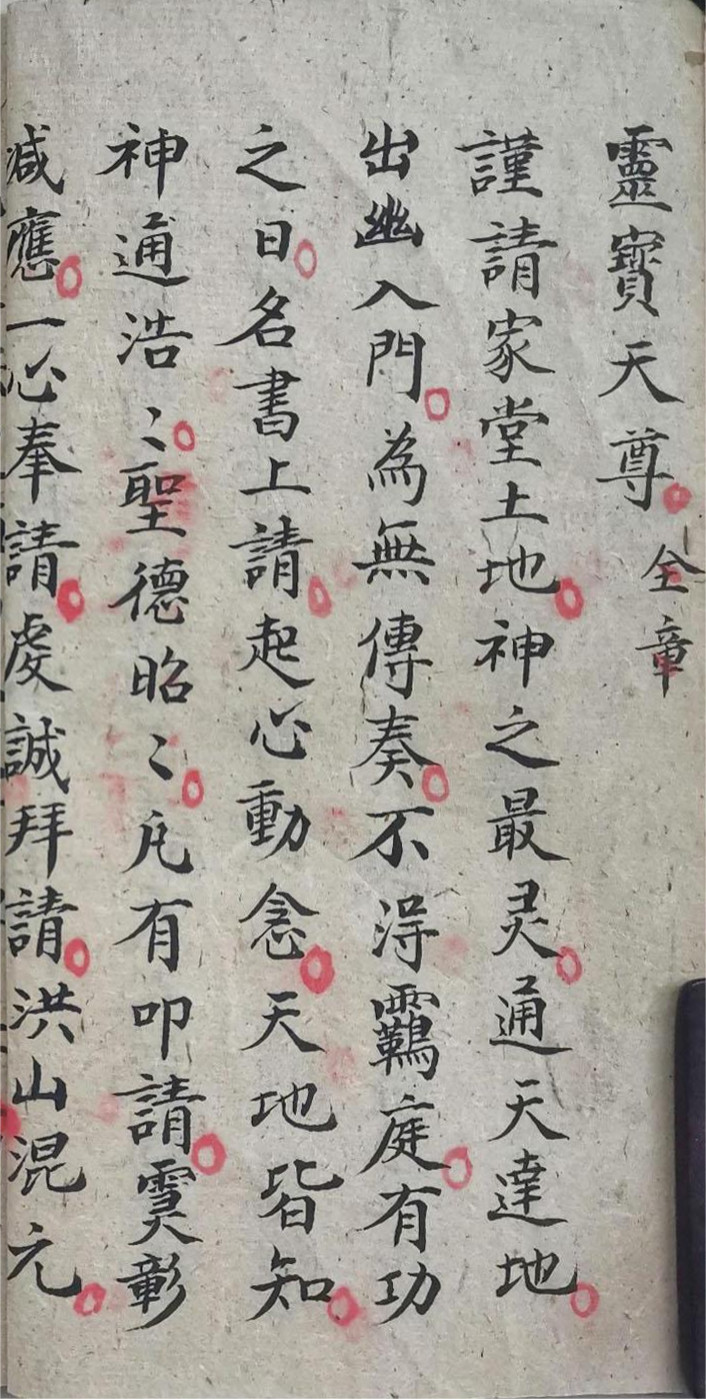 靈寳天尊 全章
謹請家堂土地神之最灵通天達地
出幽入門為無傳奏不淂靍庭有功
之日名書上請起心動念天地皆知
神通浩〻聖德昭〻凢有叩請霙彰
減應一心奉請虔誠拜請洪山混元